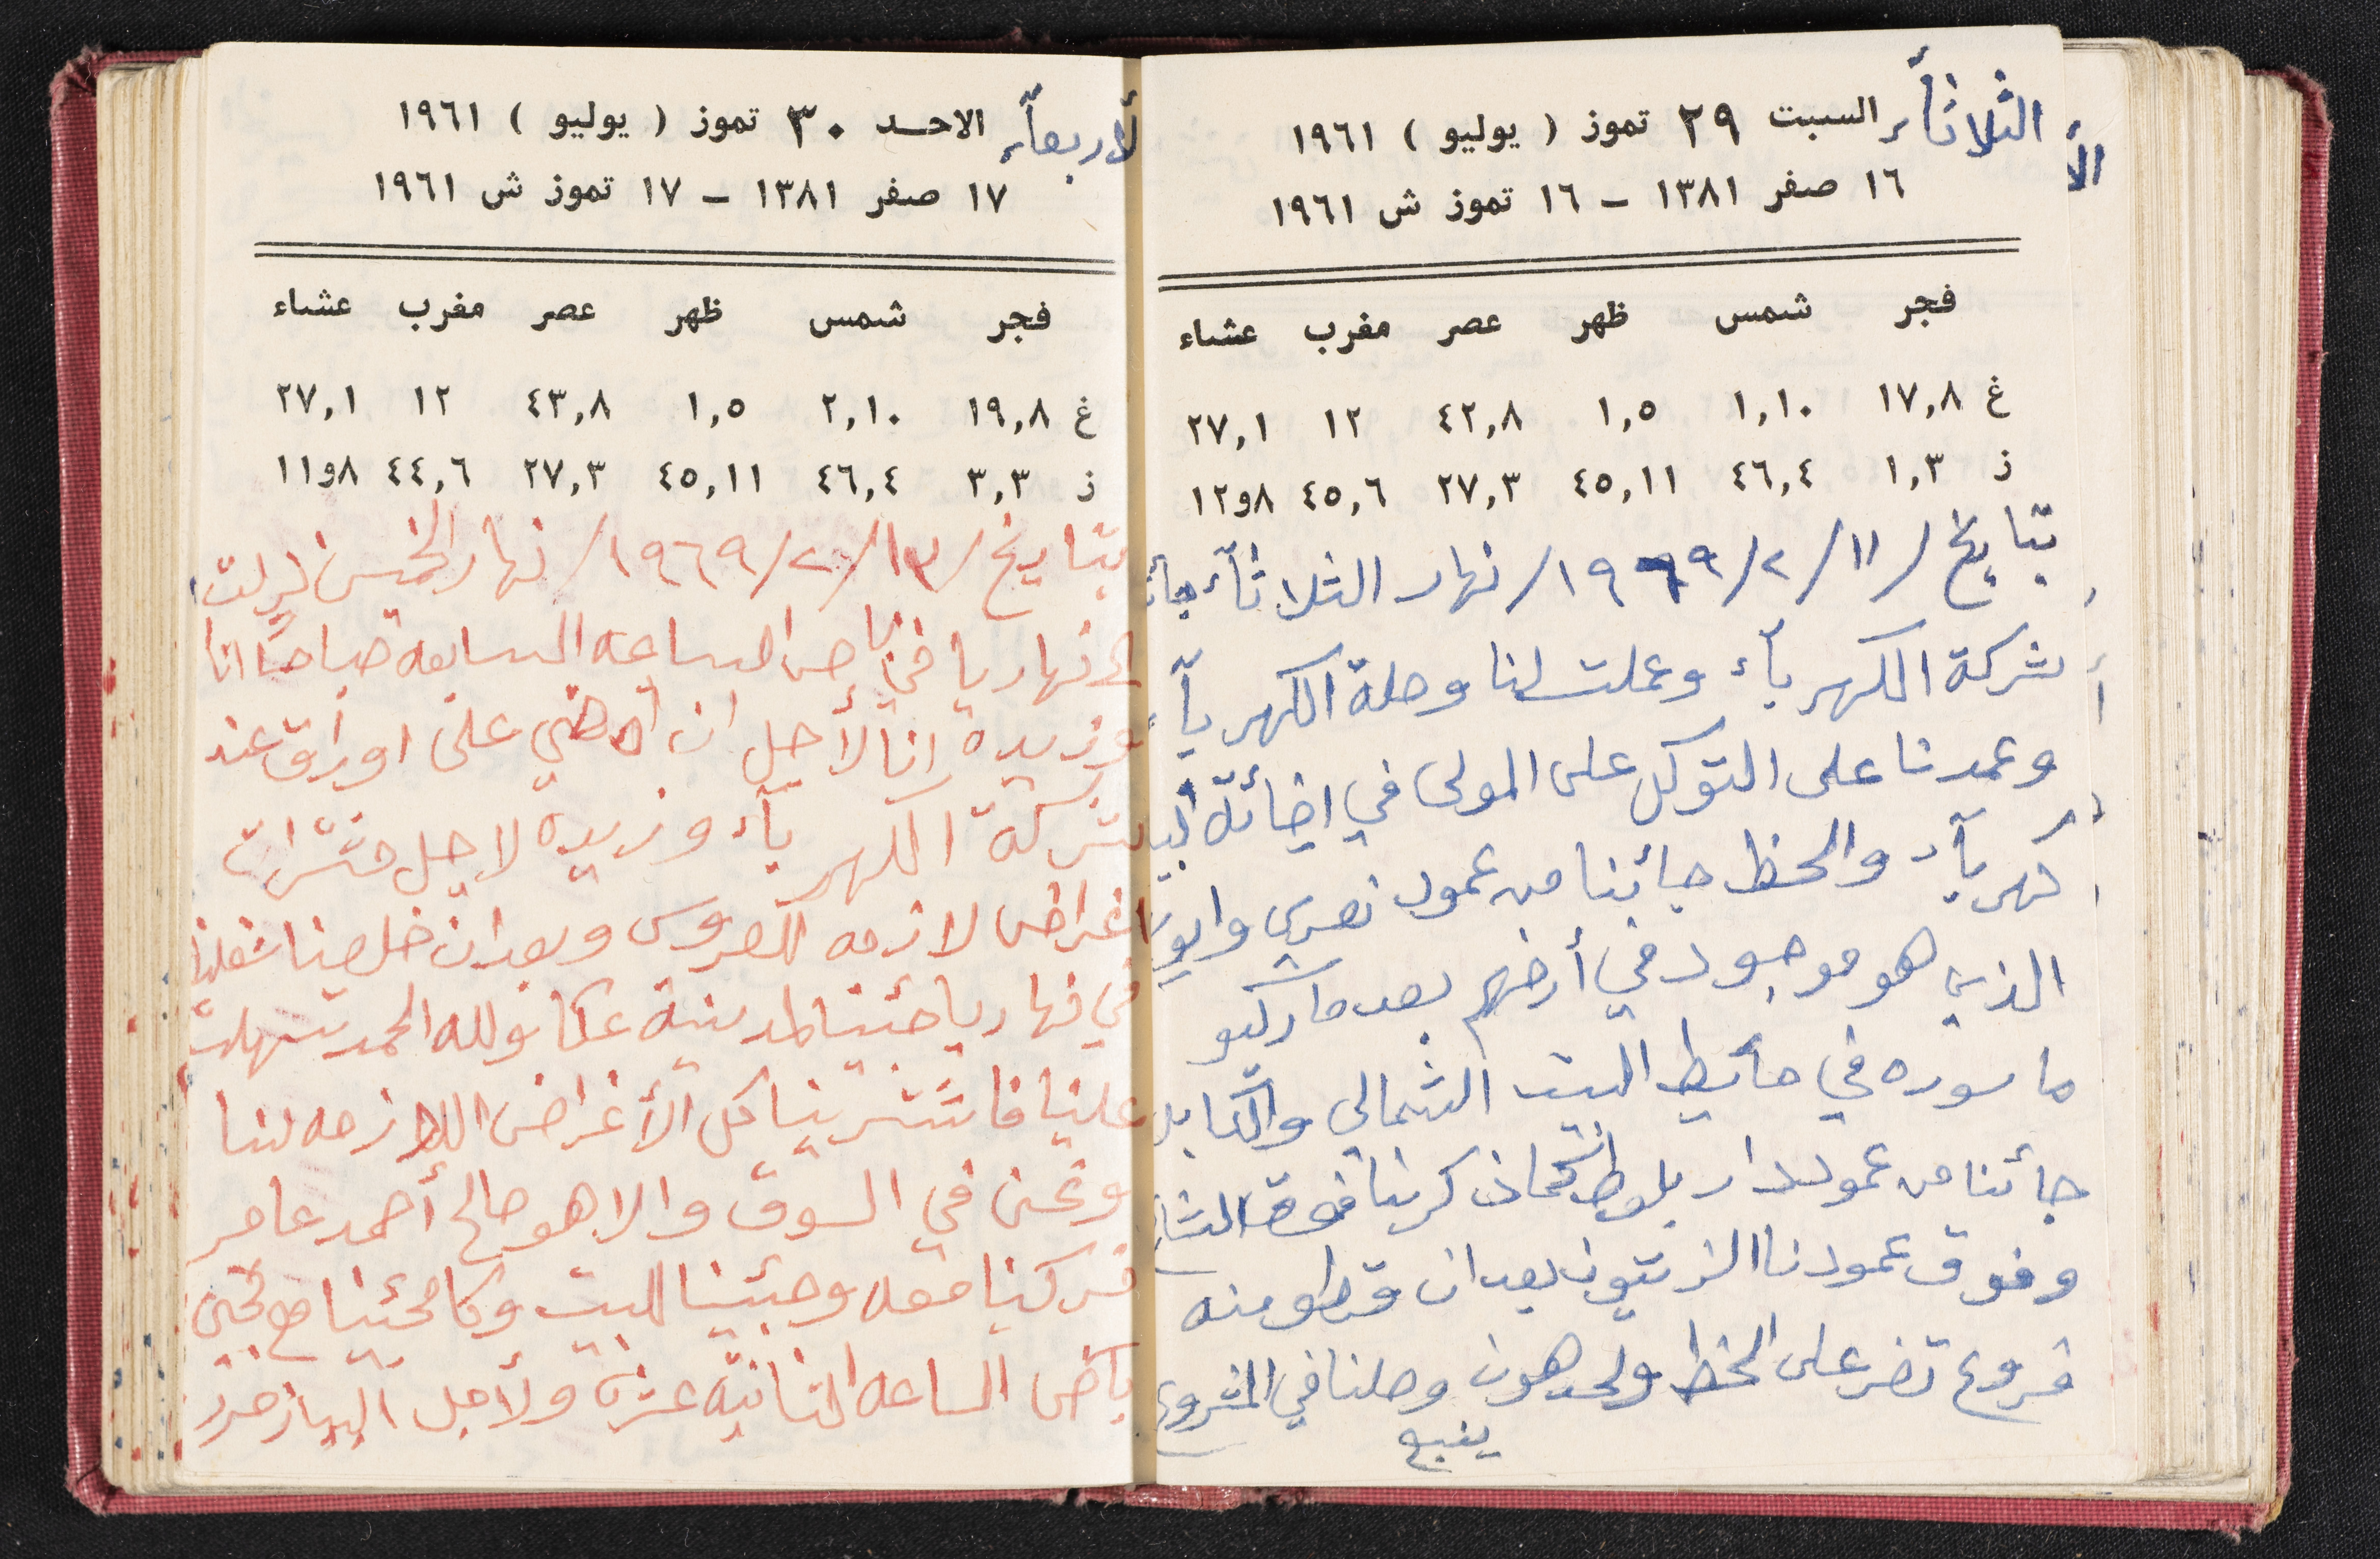 الثلاثآء السبت ٢٩ تموز ( يوليو ) ١٩٦١
١٦ صفر ١٣٨١ – ١٦ تموز ش ١٩٦١
فجر شمس ظهر عصر مغرب عشاء
غ ١٧,٨ ١,١٠ ١,٥ ٤٢,٨ ١٢ ٢٧,١
ز ١,٣ ٤٦,٤ ٤٥,١١ ٢٧,٣ ٤٥,٦ ٨و١٢
بتايخ /١١/ ٢/ ١٩٦٩/ نهار الثلاثآء جائت
شركة الكهربآء وعملت لنا وصلة الكهربآء
وعمدنا على التوكل على المولى في اضائة البيت
كهربآء والخط جائنا من عمود نصري
الذي هو موجود في أرضهم بعد ما ركبو
ماسوره في حائيط البيت الشمالي والكابل
جائنا من عمود دار بلوط
وفوق عمودنا الزيتون بعد ان قطو منه
فروع تضر على الخط ولحد هون وصلنا في المشروع
يتبع
الأربعآء الاحد ٣٠ تموز ( يوليو ) ١٩٦١
١٧ صفر ١٣٨١ – ١٧ تموز ش ١٩٦١
فجر شمس ظهر عصر مغرب عشاء
غ ١٩,٨ ٢,١٠ ١,٥ ٤٣,٨ ١٢ ٢٧,١
ز ٣,٣ ٤٦,٤ ٤٥,١١ ٢٧,٣ ٤٤,٦ ٨و١١
بتايخ /١٣/ ٢/ ١٩٦٩/ نهار الخميس نزلت
الى نهاريا في باص الساعه السابعه صباحاً انا
وزيده انا لأجل ان أمضي على اوراق عند
شركة الكهربآء وزيده لاجل مشترات
اغراض لازمه للعروس وبعد ان خلصنا شغلنا
في نهاريا جئينا لمدينة عكا ولله الحمد تسهلت
علينا فاشترينا كل الأغراض اللازمه لنا
ونحن في السوق والا هو صالح أحمد عامر
فركبنا معه وجئينا للبيت وكا مجئينا
باص الساعه الثانية عشرة ولأجل البياز